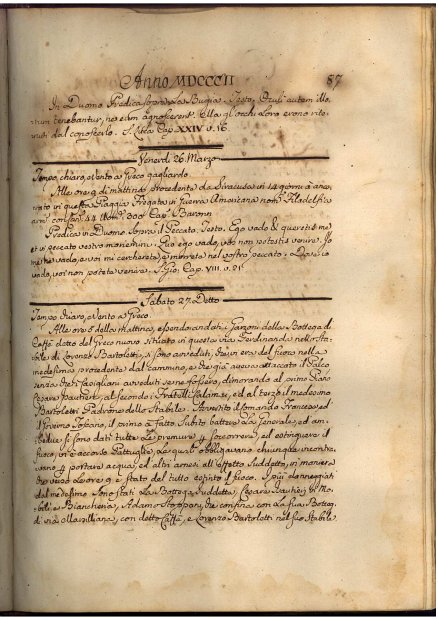 Anno MDCCCII
87
In Duomo Predica sopra la Bugia. Testo. Oculi autem illo-
rum tenebantur, ne eum agnoscerent. E
gli occhi loro erono rite-
nuti dal conoscerlo. S. Luca Cap. XXIV v. 16.
Venerdi 26. Marzo
Tempo chiaro, e Vento a Greco gagliardo
Alle ore 9 di mattina procedente da Siracusa in 14 giorni à anco-
rato in questa Spiaggia Fregata in Guerra Americana nom. Filadelfia
arm. con 44 200 Cap. Baronn
Predica in Duomo Sopra il Peccato. Testo. Ego vado & queretis me
et in peccato vestro moriemini. Quo ego vado, vos non potestis venire. Io
me ne vado, e voi mi cercherete, e morrete nel vostro peccato.
vado, voi non potete venire. S. Gio. Cap. VIII. v. 21
Sabato 27. Detto
Tempo chiaro, e Vento a Greco
Alle ore 5 della mattina, essendo andati i Garzoni della Bottega di
Caffè detto del Greco nuovo situato in questa via Ferdinanda nello Sta-
bile di Lorenzo Bartolotti, si sono avveduti, che vi era del fuoco nella
medesima procedente dal cammino, e che già aveva attaccato il Palco
senza che i Casigliani avveduti se ne fossero, dimorando al primo Piano
Cesare Pautrier, al secondo i Fratelli Salamas, ed al terzo il medesimo
Bartolotti Padrone dello Stabile. Avvertito il Comando Francese, ed
il Governo Toscano, il primo à fatto Subito battere La Generale, ed am-
bedue si sono dati tutte Le premure p soccorrere, ed estinguere il
fuoco, in è accorso Pattuglie, Le quali obbligavano chiunque incontra-
vano p portare acqua, ed altri arnesi all'effetto Suddetto, in maniera
che verso Le ore 9 è stato del tutto estinto il fuoco. I più danneggiati
dal medesimo Sono stati La Bottega Suddetta, Cesare Pautrier di Mo-
bili, e Biancheria, Adamo Stoppani, che confina con La sua Botteg.
di via con detto Caffè, e Lorenzo Bartolotti nel suo Stabile.